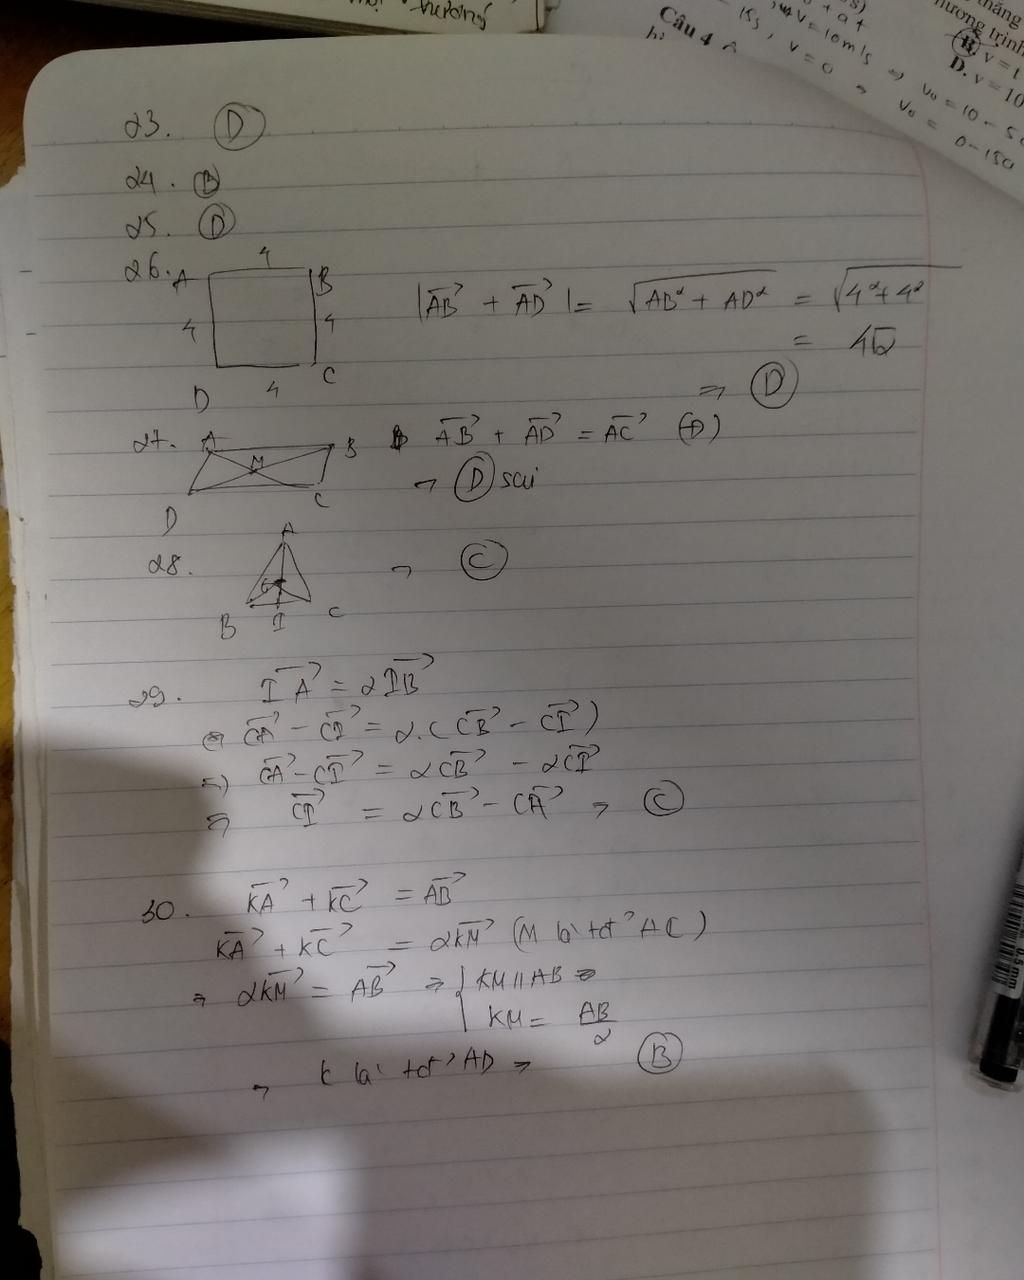 thương
(s)
+ a t
v = 10 m/s => v₀ = 10 - 5
15s, v = 0 => v₀ = 0 - 150
Câu 4
thăng
hương trình
B. v = t
D. v = 10
23. D
24. B
25. D
26. A 4 B
4 4
D 4 C
|AB→ + AD→| = √(AB² + AD²) = √(4² + 4²)
= 4√2
=> D
27. A B M D C
AB→ + AD→ = AC→ (Đ)
→ D sai
28. A G B I C → C
29. IA→ = 2IB→
⇔ CA→ - CI→ = 2.(CB→ - CI→)
⇔ CA→ - CI→ = 2CB→ - 2CI→
⇔ CI→ = 2CB→ - CA→ → C
30. KA→ + KC→ = AB→
KA→ + KC→ = 2KM→ (M là tđ' AC)
=> 2KM→ = AB→ => { KM // AB
KM = AB/2
=> K là tđ' AD => B
0.5 mm